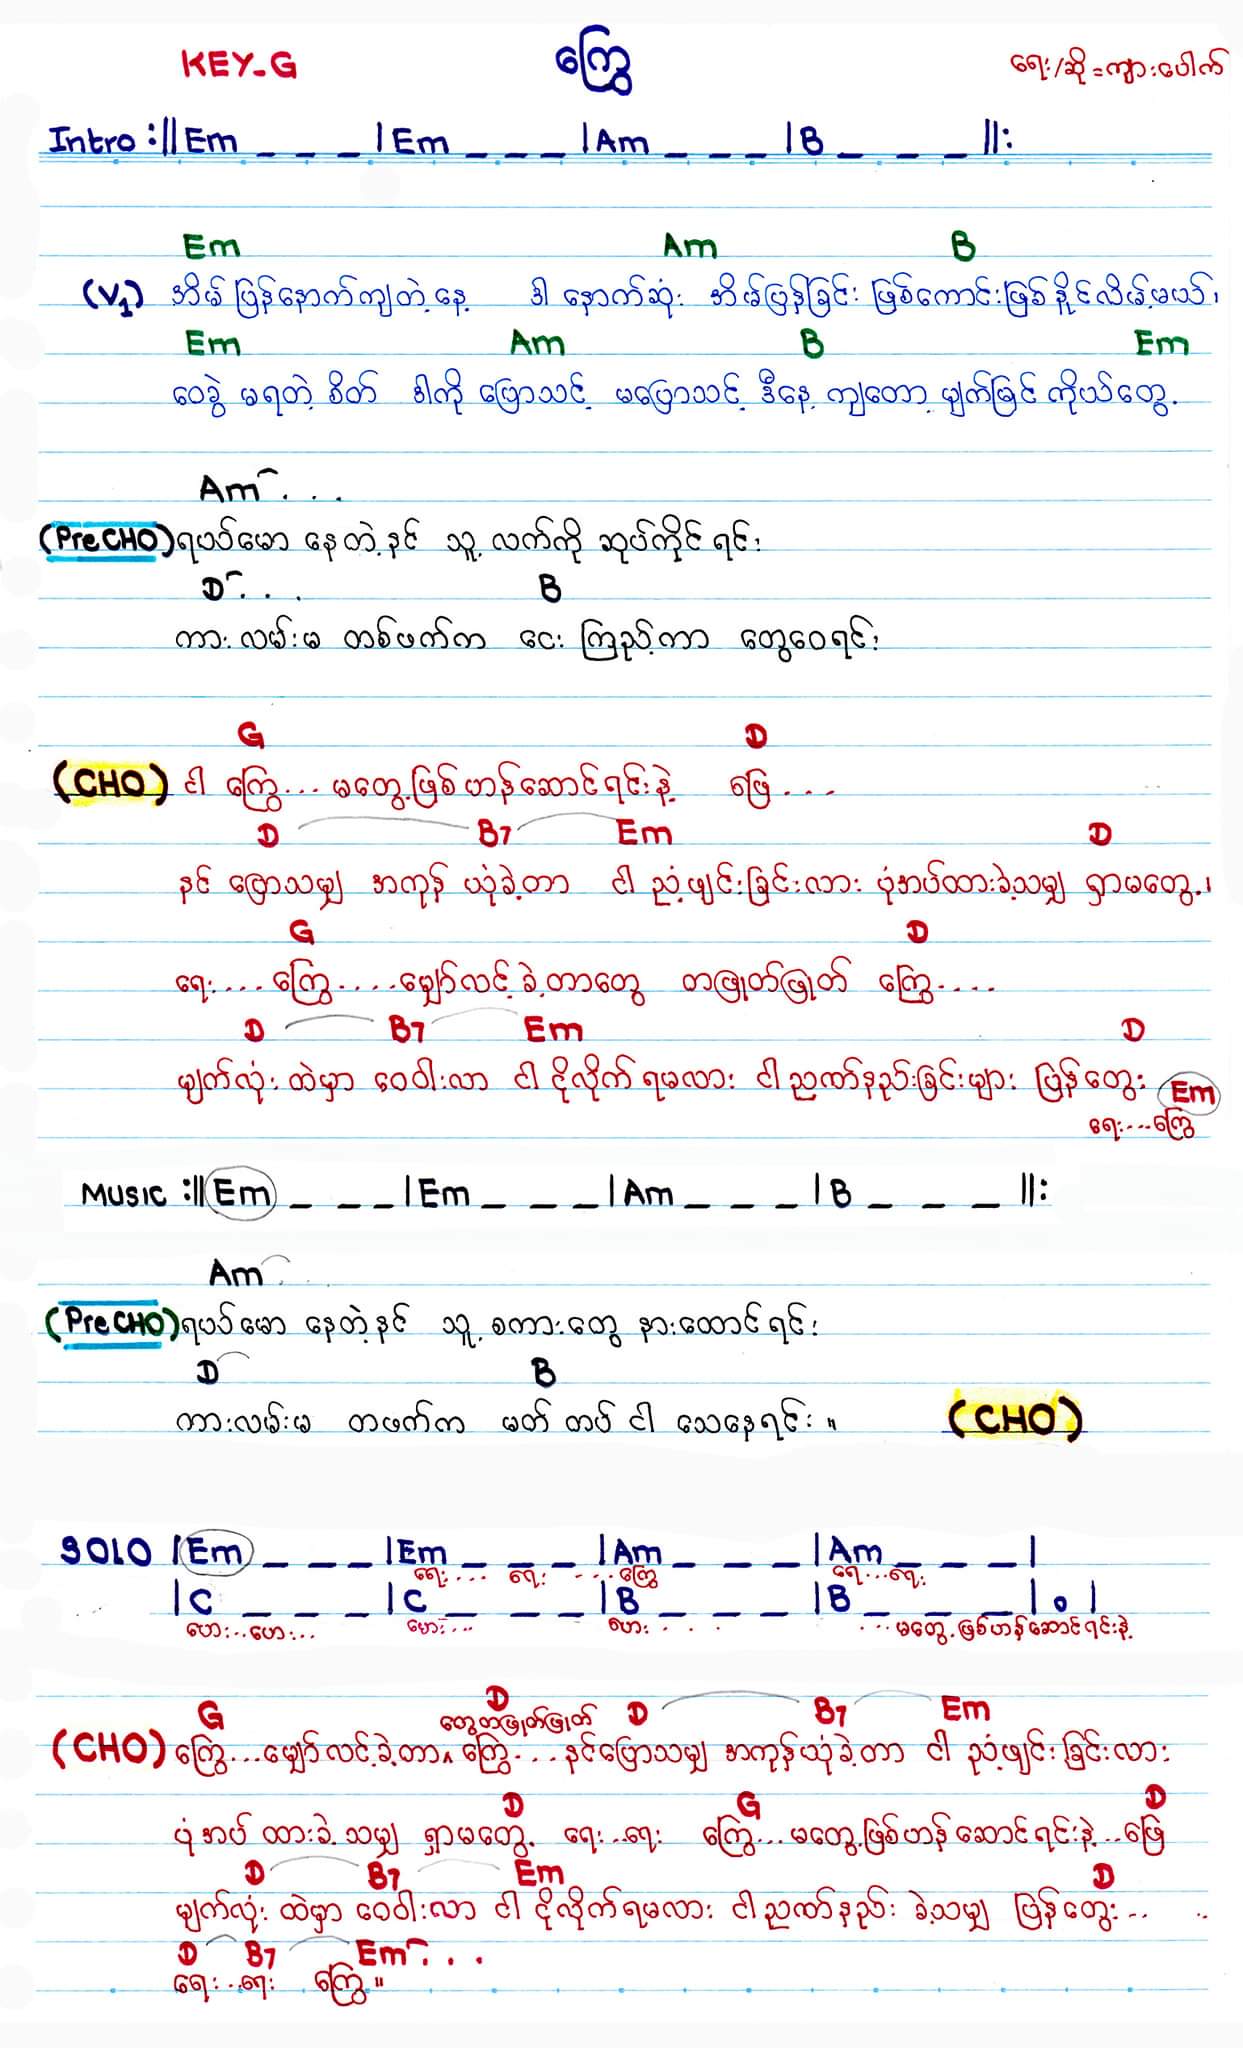 KEY-G ကြွေ ရေး/ဆို=ကျားပေါက်
Intro :||Em _ _ _ |Em _ _ _ |Am _ _ _ |B _ _ _ ||:
Em Am B
(V1) အိမ်ပြန်နောက်ကျတဲ့နေ့ ဒါ နောက်ဆုံး အိမ်ပြန်ခြင်း ဖြစ်ကောင်းဖြစ်နိုင်လိမ့်မယ်၊
Em Am B Em
ဝေခွဲ မရတဲ့ စိတ် ဒါကို ပြောသင့် မပြောသင့် ဒီနေ့ ကျတော့ မျက်မြင် ကိုယ်တွေ့
Am . . .
(Pre CHO) ရယ်မော နေတဲ့နင် သူ့ လက်ကို ဆုပ်ကိုင် ရင်း
D . . . B
ကားလမ်းမ တစ်ဖက်က ငေး ကြည့်ကာ တွေဝေရင်း
G D
(CHO) ငါ ကြွေ... မတွေ့ဖြစ်ဟန်ဆောင်ရင်းနဲ့ ဖြေ ....
D B7 Em D
နင် ပြောသမျှ အကုန် ယုံခဲ့တာ ငါ ညံ့ဖျင်းခြင်းလား ပုံအပ်ထားခဲ့သမျှ ရှာမတွေ့၊
G D
ရေး.... ကြွေ ....မျှော်လင့်ခဲ့တာတွေ တဖြုတ်ဖြုတ် ကြွေ ....
D B7 Em D
မျက်လုံးထဲမှာ ဝေဝါးလာ ငါ ငိုလိုက်ရမလား ငါ ညဏ်နည်းခြင်းများ ပြန်တွေး Em
ရေး...ကြွေ
MUSIC :||Em _ _ _ |Em _ _ _ |Am _ _ _ |B _ _ _ ||:
Am . . .
(Pre CHO) ရယ်မော နေတဲ့နင် သူ့ စကားတွေ နားထောင်ရင်း
D B
ကားလမ်းမ တဖက်က မတ်တပ် ငါ သေနေရင်း ။ (CHO)
SOLO |Em _ _ _ |Em _ _ _ |Am _ _ _ |Am _ _ _ |
ရေး.... ရေး ....ကြွေ ရေး...ရေး
|C _ _ _ |C _ _ _ |B _ _ _ |B _ _ _ |o|
ဟေး...ဟေး... ဟေး.... ဟား . . . ...မတွေ့ဖြစ်ဟန်ဆောင်ရင်းနဲ့
G D D B7 Em
တွေတဖြုတ်ဖြုတ်
(CHO) ကြွေ...မျှော်လင့်ခဲ့တာ^ ကြွေ...နင်ပြောသမျှ အကုန်ယုံခဲ့တာ ငါ ညံ့ဖျင်းခြင်းလား
D G D
ပုံအပ် ထားခဲ့သမျှ ရှာမတွေ့ ရေး..ရေး ကြွေ...မတွေ့ဖြစ်ဟန်ဆောင်ရင်းနဲ့...ဖြေ
D B7 Em D
မျက်လုံးထဲမှာ ဝေဝါးလာ ငါ ငိုလိုက်ရမလား ငါ ညဏ်နည်း ခဲ့သမျှ ပြန်တွေး.. ..
D B7 Em . . .
ရေး...ရေး ကြွေ ။